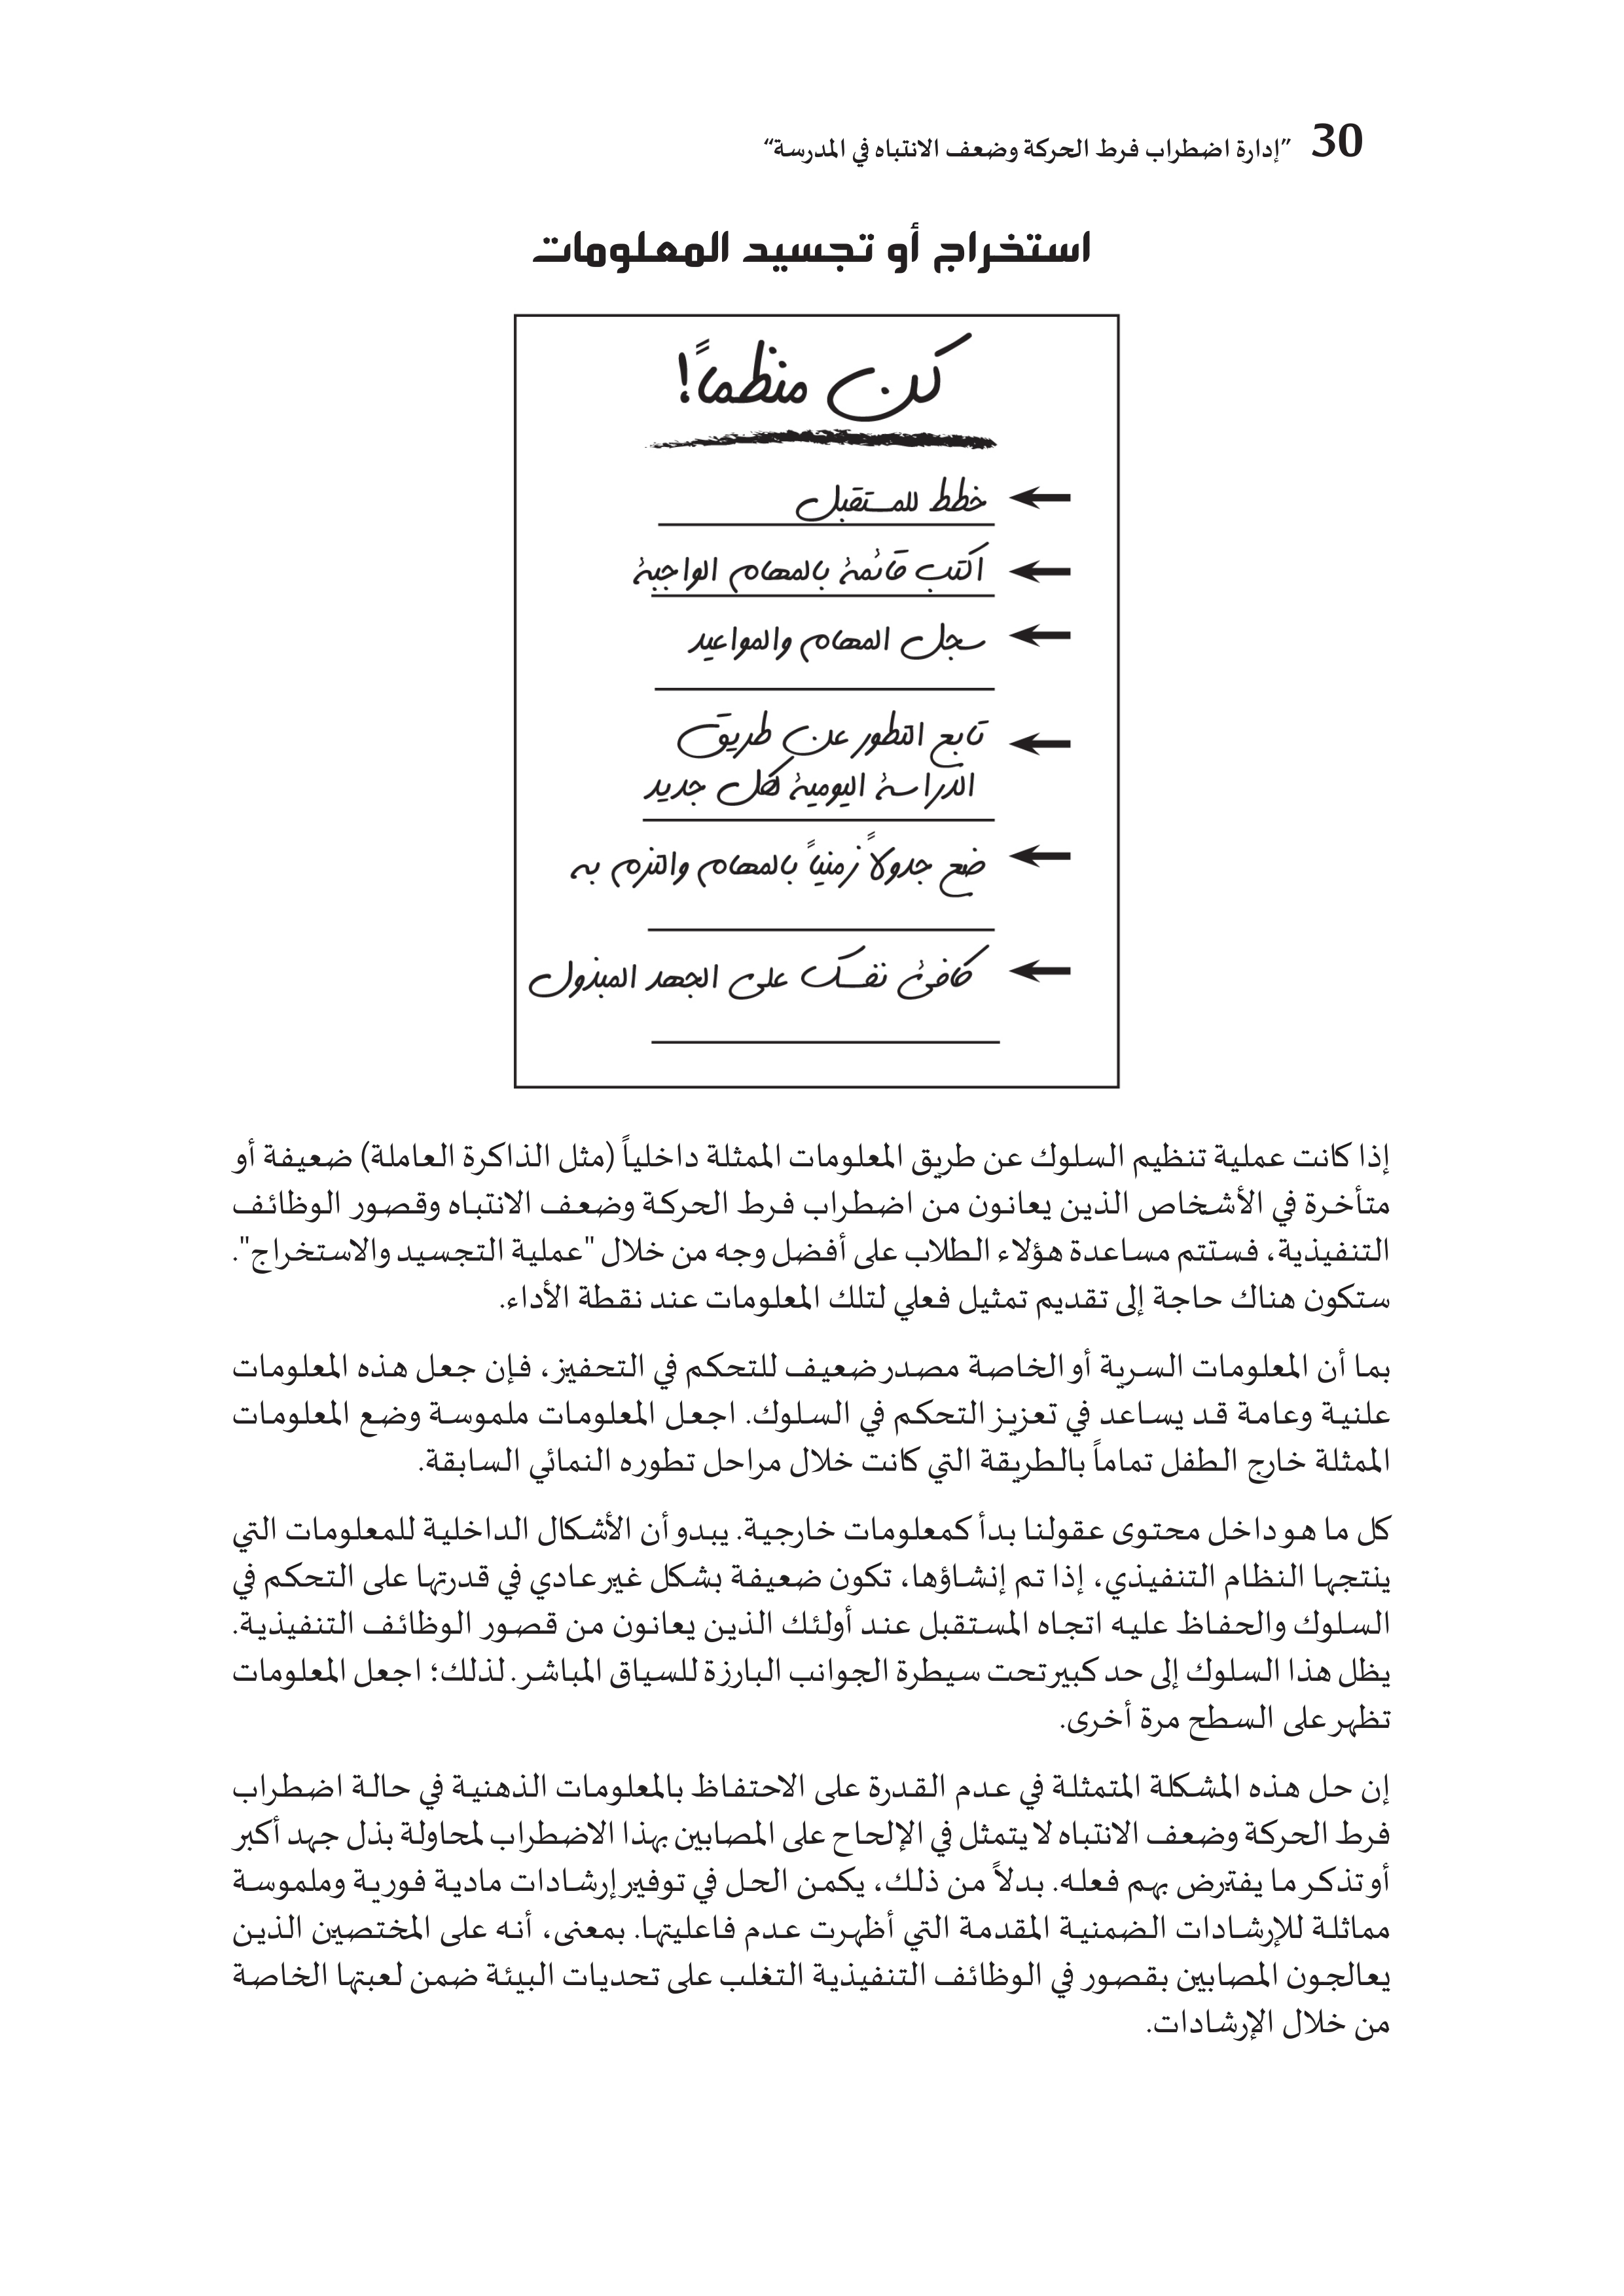 30 ”إدارة اضطراب فرط الحركة وضعف الانتباه في المدرسة“
استخراج أو تجسيد المعلومات
كن منظماً!
خطط للمستقبل
اكتب قائمة بالمهام الواجبة
سجل المهام والمواعيد
تابع التطور عن طريق
الدراسة اليومية لكل جديد
ضع جدولاً زمنياً بالمهام والتزم به
كافئ نفسك على الجهد المبذول
إذا كانت عملية تنظيم السلوك عن طريق المعلومات الممثلة داخلياً (مثل الذاكرة العاملة) ضعيفة أو
متأخرة في الأشخاص الذين يعانون من اضطراب فرط الحركة وضعف الانتباه وقصور الوظائف
التنفيذية، فستتم مساعدة هؤلاء الطلاب على أفضل وجه من خلال "عملية التجسيد والاستخراج".
ستكون هناك حاجة إلى تقديم تمثيل فعلي لتلك المعلومات عند نقطة الأداء.
بما أن المعلومات السرية أو الخاصة مصدر ضعيف للتحكم في التحفيز، فإن جعل هذه المعلومات
علنية وعامة قد يساعد في تعزيز التحكم في السلوك. اجعل المعلومات ملموسة وضع المعلومات
الممثلة خارج الطفل تماماً بالطريقة التي كانت خلال مراحل تطوره النمائي السابقة.
كل ما هو داخل محتوى عقولنا بدأ كمعلومات خارجية. يبدو أن الأشكال الداخلية للمعلومات التي
ينتجها النظام التنفيذي، إذا تم إنشاؤها، تكون ضعيفة بشكل غير عادي في قدرتها على التحكم في
السلوك والحفاظ عليه اتجاه المستقبل عند أولئك الذين يعانون من قصور الوظائف التنفيذية.
يظل هذا السلوك إلى حد كبير تحت سيطرة الجوانب البارزة للسياق المباشر. لذلك؛ اجعل المعلومات
تظهر على السطح مرة أخرى.
إن حل هذه المشكلة المتمثلة في عدم القدرة على الاحتفاظ بالمعلومات الذهنية في حالة اضطراب
فرط الحركة وضعف الانتباه لا يتمثل في الإلحاح على المصابين بهذا الاضطراب لمحاولة بذل جهد أكبر
أو تذكر ما يفترض بهم فعله. بدلاً من ذلك، يكمن الحل في توفير إرشادات مادية فورية وملموسة
مماثلة للإرشادات الضمنية المقدمة التي أظهرت عدم فاعليتها. بمعنى، أنه على المختصين الذين
يعالجون المصابين بقصور في الوظائف التنفيذية التغلب على تحديات البيئة ضمن لعبتها الخاصة
من خلال الإرشادات.